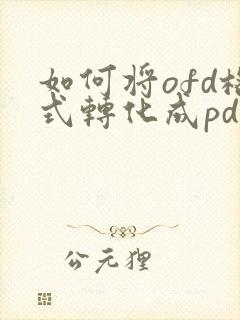 如何将ofd格
式轉化成pd
公元狸